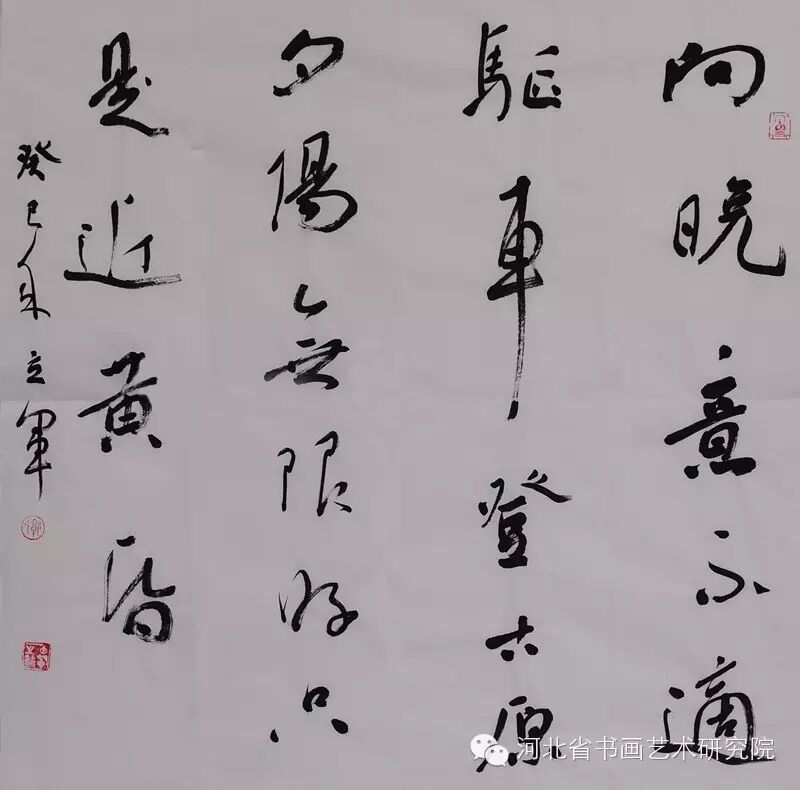 向晚意不適
驅車登古原
夕陽無限好只
是近黄昏
癸巳朱立軍
河北省书画艺术研究院